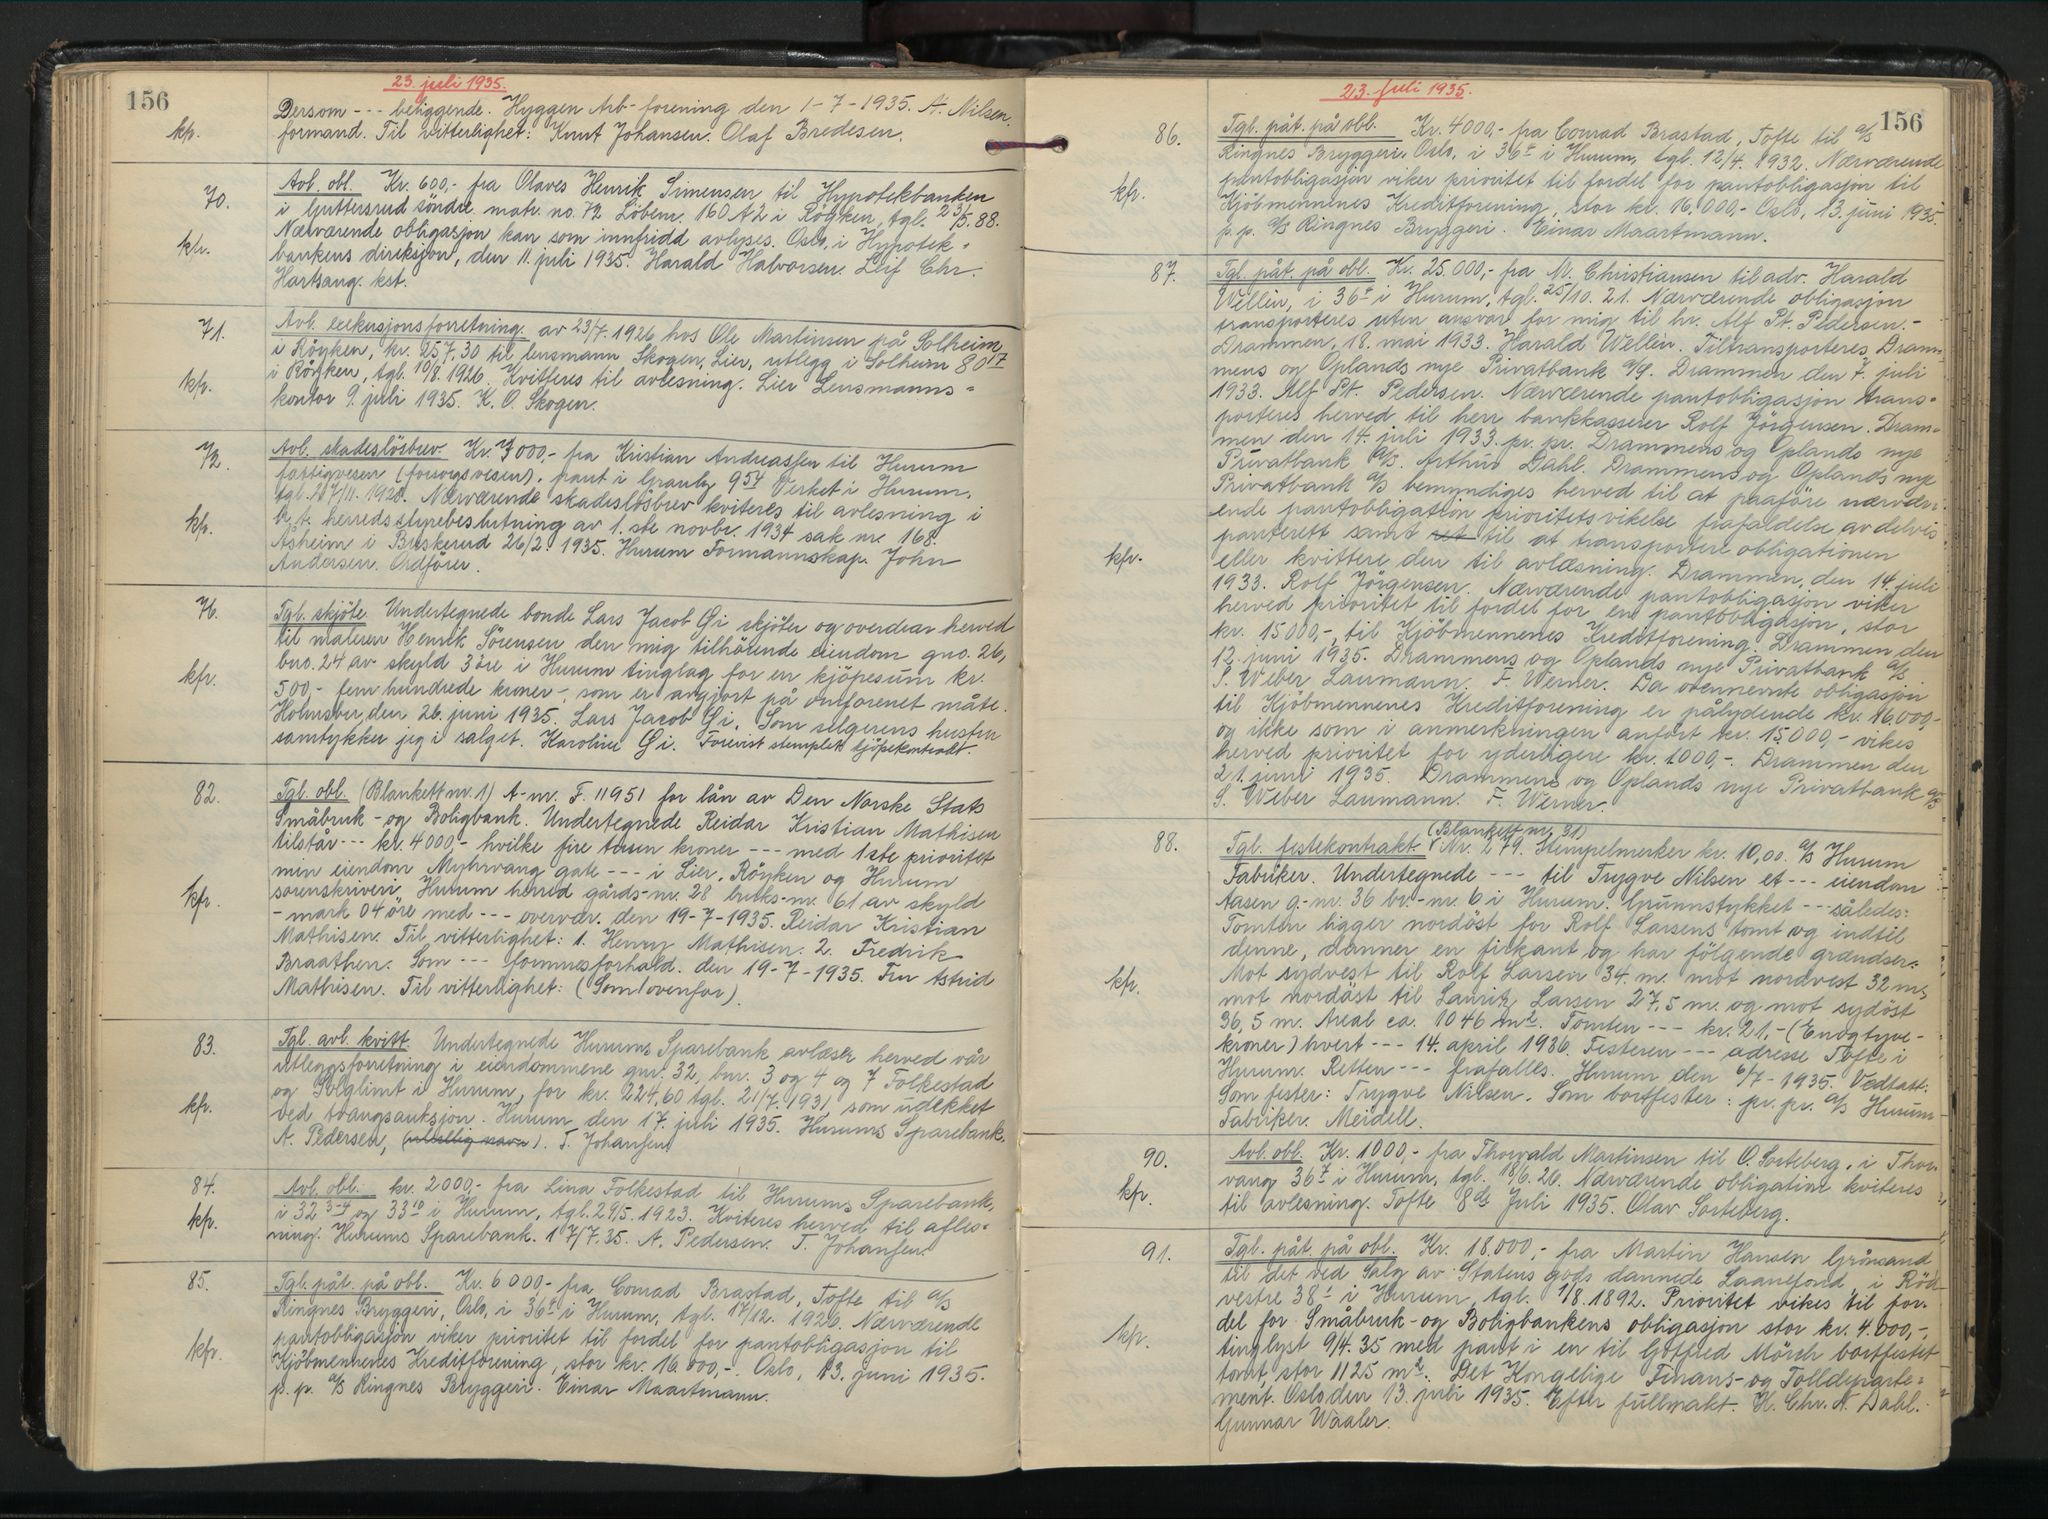 156
23. juli 1935.
Dersom --- beliggende. Hyggen Arb-forening den 1-7-1935. A. Nilsen.
kfr. formand. Til vitterlighet: Knut Johansen. Olaf Bredesen.
70. Avl. obl. Kr. 600,- fra Olaves Henrik Simensen til Hypotekbanken
i Guttersrud söndre matr. no. 72 Löbenr. 160 A 2 i Röyken, tgl. 23/5. 88.
Nærværende obligasjon kan som innfridd avlyses. Oslo, i Hypotek-
kfr. bankens direksjon, den 11. juli 1935. Harald Halvorsen. Leif Chr.
Hartsang. kst.
71. Avl. eksekusjonsforretning. av 23/7. 1926 hos Ole Martinsen på Solheim
i Röyken, kr. 257,30 til lensmann Skogen, Lier, utlegg i Solheim 80 17
kfr. i Röyken, tgl. 10/8. 1926. Kvitteres til avlesning. Lier Lensmanns-
kontor 9. juli 1935. K. O. Skogen.
72. Avl. skadeslösbrev. Kr. 7000,- fra Kristian Andreassen til Hurum
fattigvesen (forsorgsvesen), pant i 95 4 Verket i Hurum,
tgl. 27/11. 1928. Nærværende skadeslösbrev kviteres til avlesning i
kfr. h.t. herredsstyrebeslutning av 1.ste novbr. 1934 sak nr. 168.
Åsheim i Buskerud 26/2. 1935. Hurum Formannskap. John
Andersen. Ordförer.
76. Tgl. skjöte. Undertegnede bonde Lars Jacob Gi skjöter og overdrar herved
til maleren Henrik Sörensen den mig tilhörende eiendom gno. 26,
bno. 24 av skyld 3 öre i Hurum tinglag for en kjöpesum kr.
kfr. 500,- fem hundrede kroner -, som er avgjort på omforenet måte.
Holmsbu, den 26. juni 1935. Lars Jacob Gi. Som selgerens hustru
samtykker jeg i salget. Karoline Gi. Forevist stemplet kjöpekontrakt.
82. Tgl. obl. (Blankett nr. 1) A-nr. F. 11951 for lån av Den Norske Stats
Småbruk- og Boligbank. Undertegnede Reidar Kristian Mathisen
tilstår --- kr. 4000,- hvilke fire tusen kroner --- med 1ste prioritet
min eiendom Myhrvang gate --- i Lier, Röyken og Hurum
kfr. sorenskriveri, Hurum herred gårds-nr. 28 bruks-nr. 61 av skyld
- mark 04 öre med --- overvær. den 19-7-1935. Reidar Kristian
Mathisen. Til vitterlighet: 1. Henry Mathisen. 2. Fredrik
Braathen. Som --- formuesforhald. den 19-7-1935. Fru Astrid
Mathisen. Til vitterlighet: (Som ovenfor).
83. Tgl. avl. kvitt. Undertegnede Hurums Sparebank avlæser herved vår
utleggsforretning i eiendommene gnr. 32, bnr. 3 og 4 og 7 Folkestad
og Solglimt i Hurum, for kr. 224,60 tgl. 21/7. 1931, som udekket
kfr. ved tvangsauksjon. Hurum, den 17. juli 1935. Hurums Sparebank.
A. Pedersen, (uleselig navn). T. Johansen.
84. Avl. obl. kr. 2000,- fra Lina Folkestad til Hurums Sparebank,
kfr. i 32 3-4 og 33 10 i Hurum, tgl. 29/5. 1923. Kviteres herved til afles-
ning. Hurums Sparebank. 17/7. 35. A. Pedersen. T. Johansen.
85. Tgl. påt. på obl. Kr. 6000,- fra Conrad Brastad, Tofte til A/S
Ringnes Bryggeri, Oslo, i 36 4 i Hurum, tgl. 17/12. 1926. Nærværende
pantobligasjon viker prioritet til fordel for pantobligasjon til
kfr. Kjöbmennenes Kreditforening, stor kr. 16000,-. Oslo, 13. juni 1935.
p.p. A/S Ringnes Bryggeri. Einar Maartmann.
23. juli 1935.
156
86. Tgl. påt. på obl. Kr. 4000,- fra Conrad Brastad, Tofte til A/S
Ringnes Bryggeri, Oslo, i 36 4 i Hurum, tgl. 12/4. 1932. Nærværende
kfr. pantobligasjon viker prioritet til fordel for pantobligasjon til
Kjöbmennenes Kreditforening, stor kr. 16.000,- Oslo, 13. juni 1935.
p.p. A/S Ringnes Bryggeri. Einar Maartmann.
87. Tgl. påt. på obl. Kr. 25.000,- fra M. Christiansen til adv. Harald
Wellén, i 36 4 i Hurum, tgl. 25/10. 21. Nærværende obligasjon
transporteres uten ansvar for mig til hr. Alf Pt. Pedersen.-
Drammen, 18. mai 1933. Harald Wellén. Tiltransporteres Dram-
mens og Oplands nye Privatbank A/S. Drammen den 7. juli
1933. Alf Pt. Pedersen. Nærværende pantobligasjon trans-
porteres herved til herr bankkasserer Rolf Jörgensen. Dram-
men den 14. juli 1933. pr. pr. Drammens og Oplands nye
Privatbank A/S. Arthur Dahl. Drammens og Oplands nye
Privatbank A/S bemyndiges herved til at paaföre nærvær-
ende pantobligation prioritetsvikelse frafaldelse av delvis
panterett samt til at transportere obligationen
kfr. eller kvittere den til avlæsning. Drammen, den 14. juli
1933. Rolf Jörgensen. Nærværende pantobligasjon viker
herved prioritet til fordel for en pantobligasjon, stor
kr. 15000,-, til Kjöbmennenes Kreditforening. Drammen, den
12. juni 1935. Drammens og Oplands nye Privatbank A/S
S. Weber Laumann. F. Werner. Da ovennevnte obligasjon
til Kjöbmennenes Kreditforening er pålydende kr. 16000,-
og ikke som i anmerkningen anfört kr. 15000,- vikes
herved prioritet for yderligere kr. 1000,-. Drammen den
21. juni 1935. Drammens og Oplands nye Privatbank A/S
S. Weber Laumann. F. Werner.
(Blankett nr. 31)
88. Tgl. festekontrakt. Nr. 279. Stempelmerker kr. 10,00. A/S Hurum
Fabriker. Undertegnede --- til Trygve Nilsen et --- eiendom
Aasen g.-nr. 36 br.-nr. 6 i Hurum. Grunnstykket --- således:
Tomten ligger nordöst for Rolf Larsens tomt og indtil
denne, danner en firkant og har fölgende grændser:
Mot sydvest til Rolf Larsen 34 m. mot nordvest 32 m,
kfr. mot nordöst til Lauritz Larsen 27,5 m. og mot sydöst
36,5 m. Areal ca. 1046 m². Tomten --- kr. 21,- (Enogtyve-
kroner) hvert --- 14. april 1936. Festeren --- adresse Tofte i
Hurum. Retten --- frafalles. Hurum, den 6/7-1935. Vedtatt:
Som fester: Trygve Nilsen. Som bortfester: pr. pr. A/S Hurum
Fabriker. Meidell.
90. Avl. obl. Kr. 1000,- fra Thorvald Martinsen til O. Sorteberg, i Thor-
kfr. vang 36 7 i Hurum, tgl. 18/6. 26. Nærværende obligation kviteres
til avlesning. Tofte 8de Juli 1935. Olav Sorteberg.
91. Tgl. påt. på obl. Kr. 18.000,- fra Martin Hansen Grimsand
til det ved Salg av Statens gods dannede Laanefond, i Röd
vestre 38 1 i Hurum, tgl. 1/8. 1892. Prioritet vikes til for-
del for Småbruk- og Boligbankens obligasjon stor kr. 4.000,-,
kfr. tinglyst 9/4. 35 med pant i en til Gotfred Mörch bortfestet
tomt, stor 1125 m². Det Kongelige Finans- og Tolldeparte-
ment. Oslo den 13. juli 1935. Efter fullmakt. K. Chr. N. Dahl.
Gunnar Waaler.